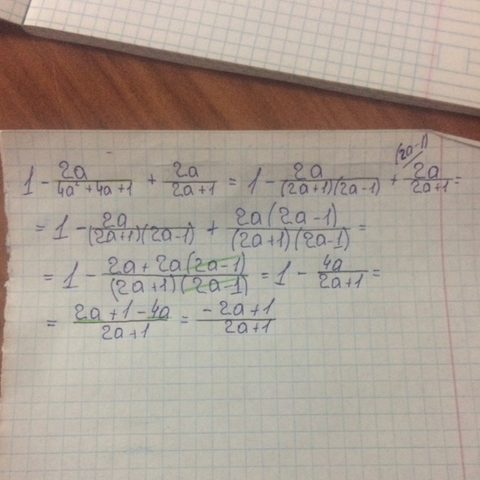 1 - 2a/(4a² + 4a + 1) + 2a/(2a+1) = 1 - 2a/((2a+1)(2a-1)) + (2a-1) 2a/(2a+1) =
= 1 - 2a/((2a+1)(2a-1)) + 2a(2a-1)/((2a+1)(2a-1)) =
= 1 - (2a + 2a(2a-1))/((2a+1)(2a-1)) = 1 - 4a/(2a+1) =
= (2a+1-4a)/(2a+1) = (-2a+1)/(2a+1)